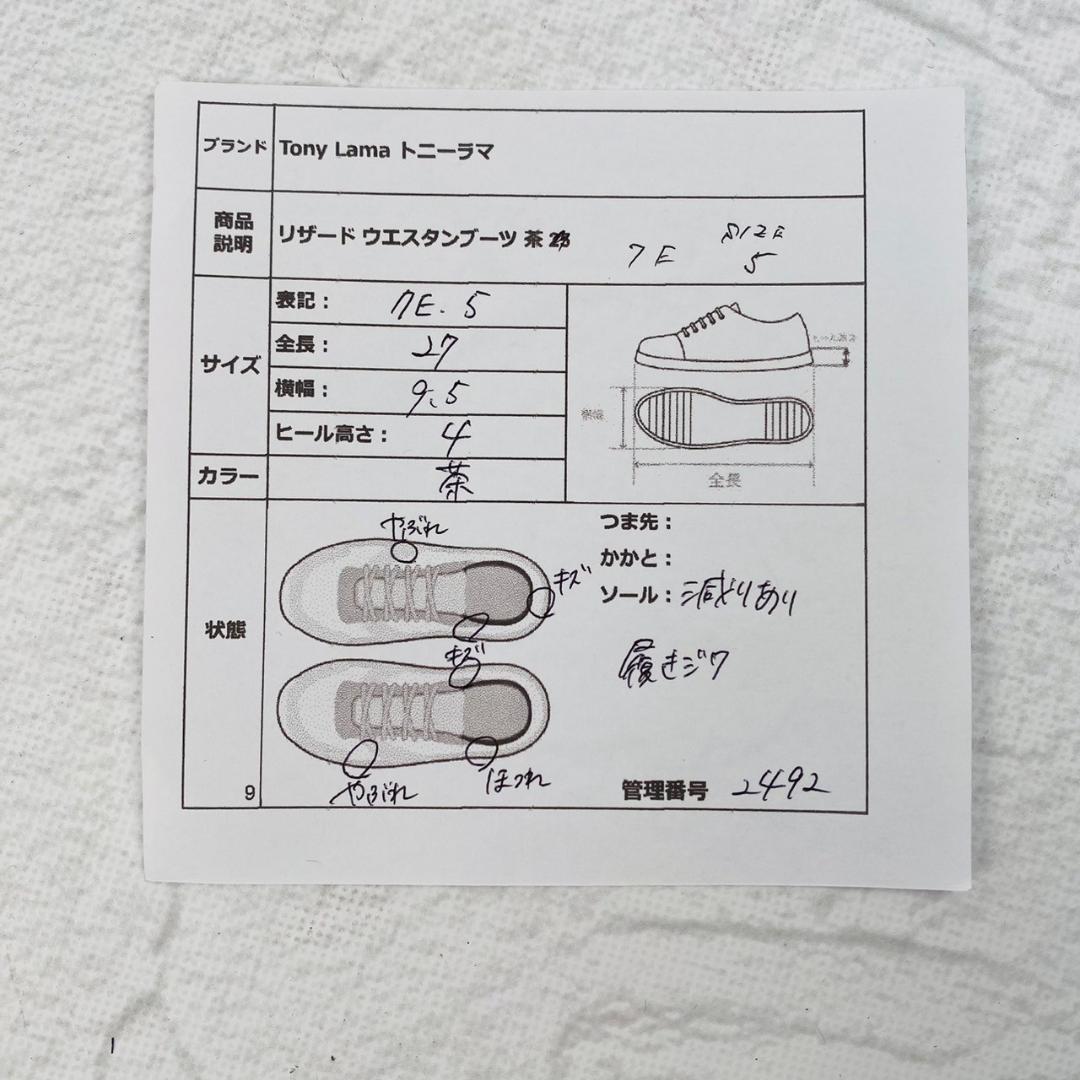 ブランド Tony Lama トニーラマ
商品説明 リザード ウエスタンブーツ 茶 7E SIZE 5
サイズ
表記： 7E. 5
全長： 27
横幅： 9.5
ヒール高さ： 4
横幅
全長
カラー 茶
状態
やぶれ
キズ
キズ
やぶれ
ほつれ
つま先：
かかと：
ソール： 減りあり
履きジワ
管理番号 2492
9